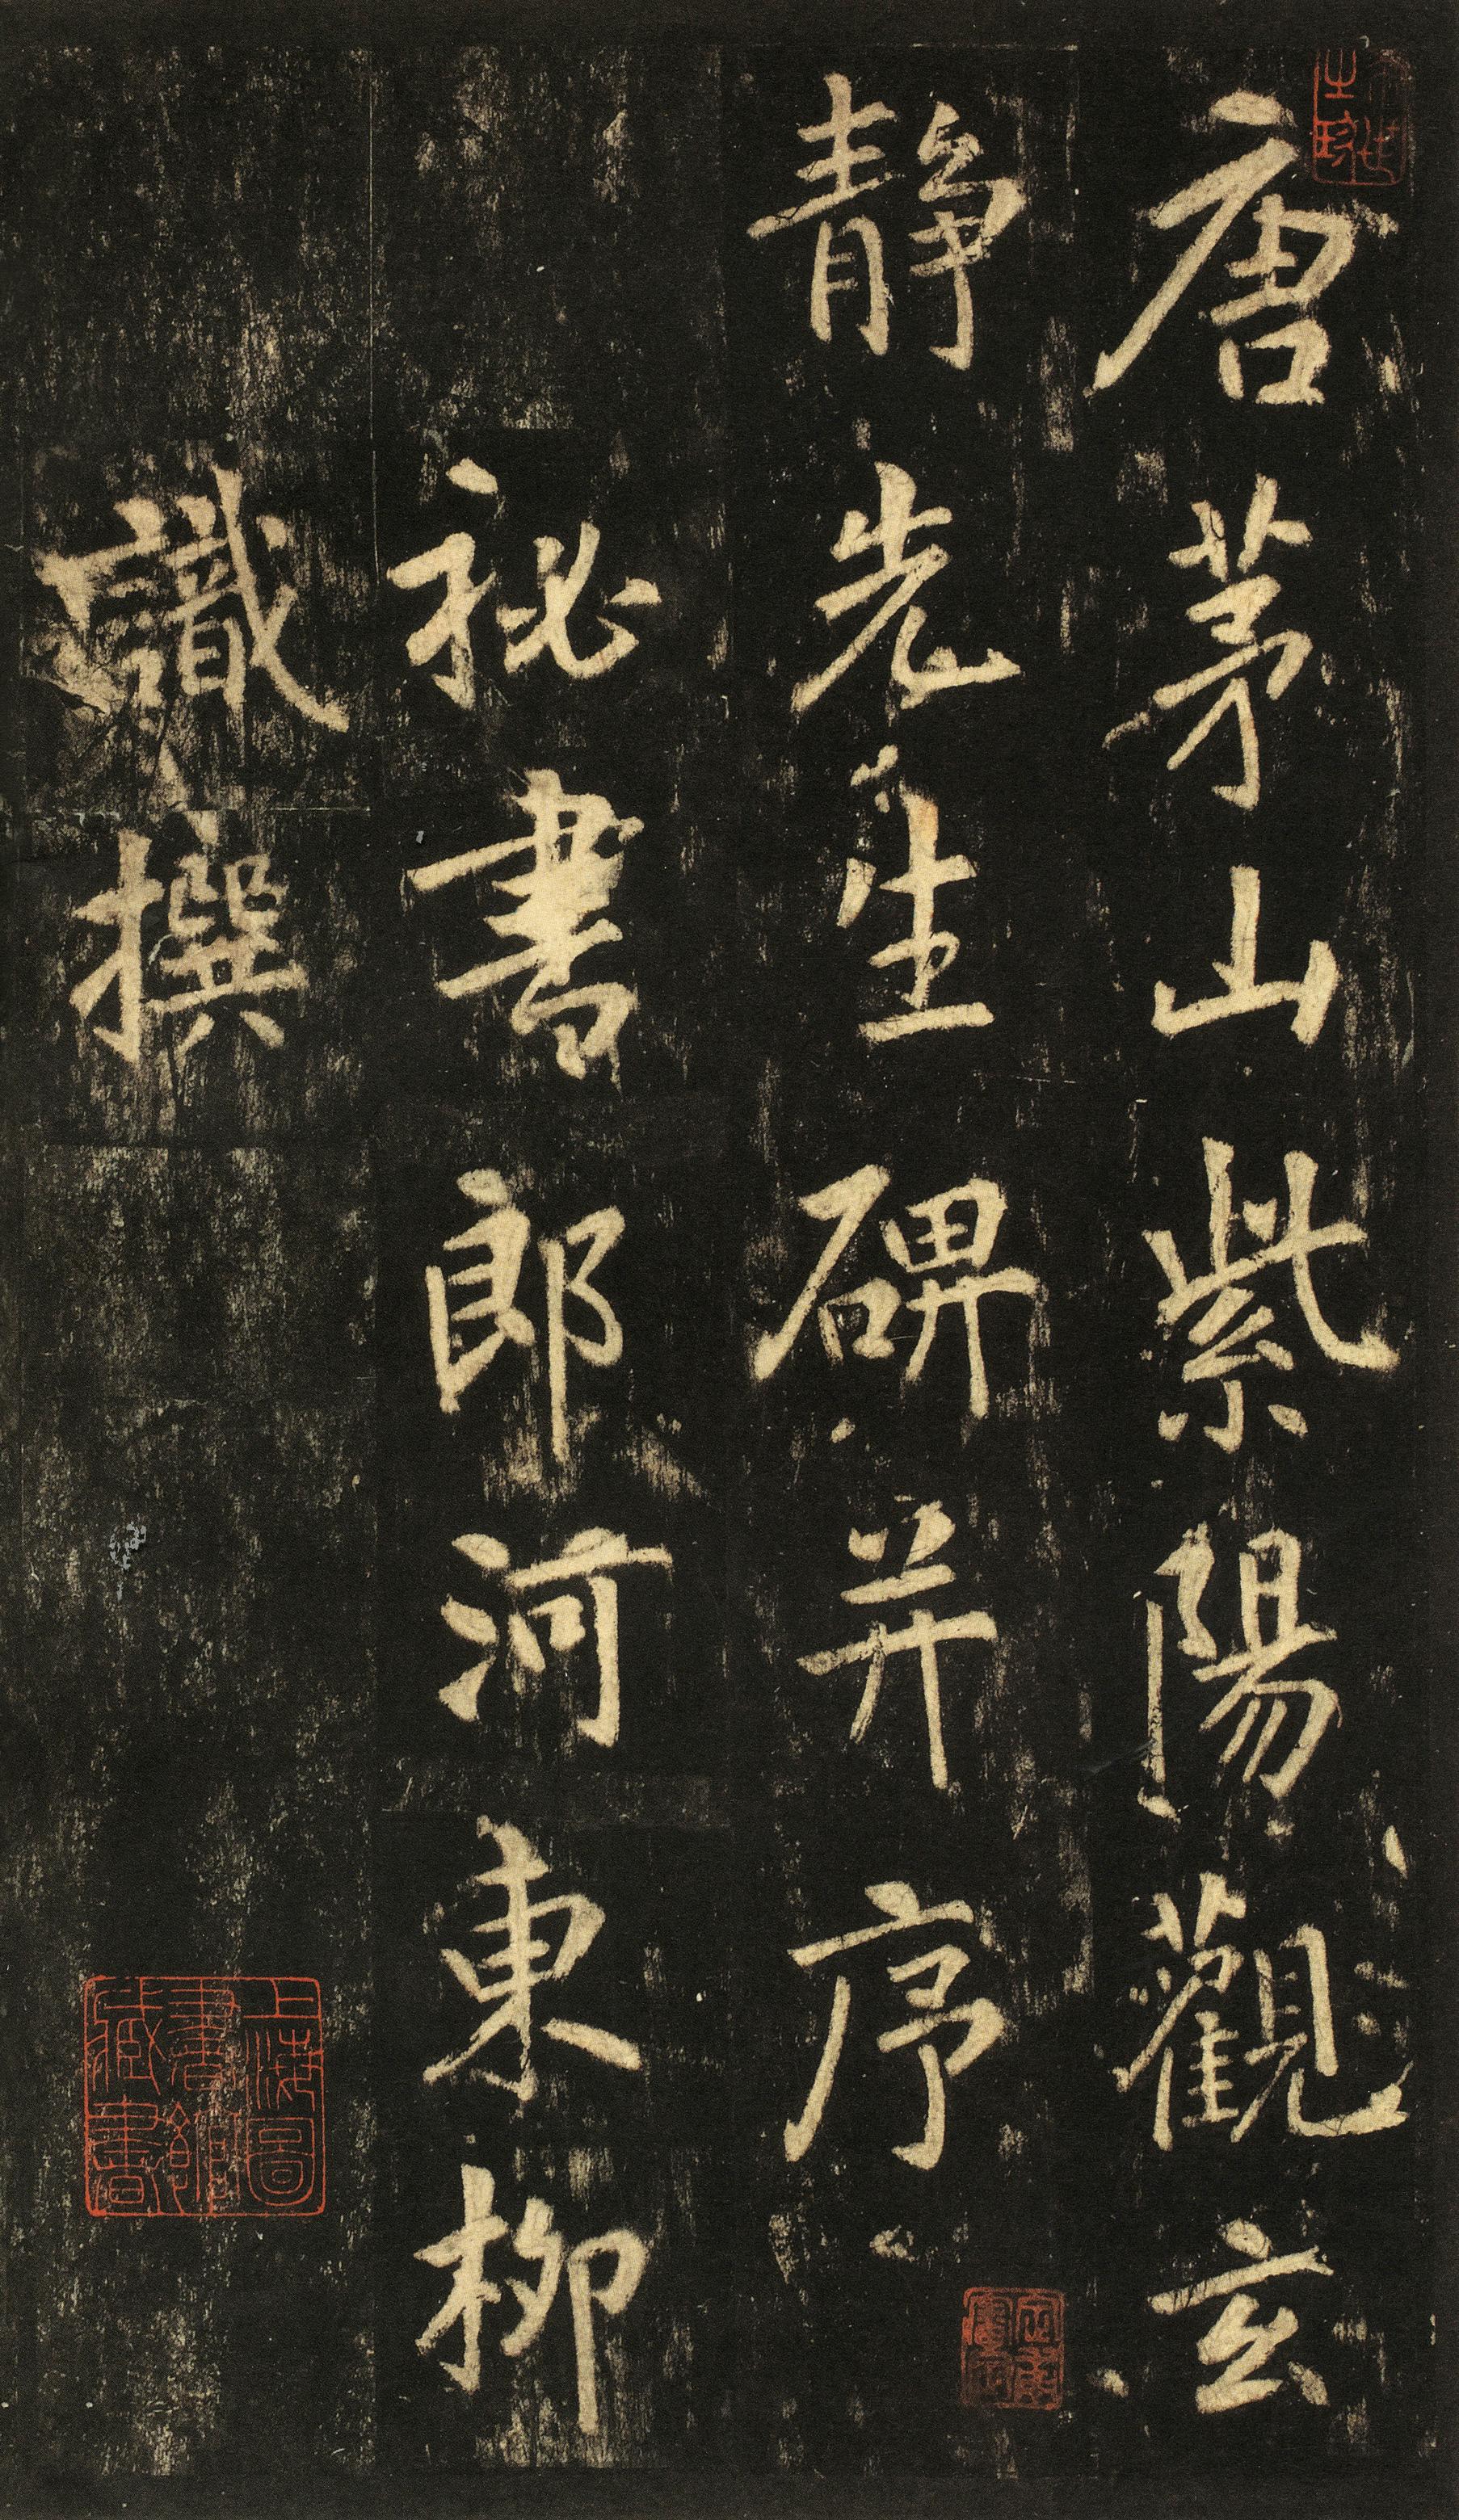 唐茅山紫陽觀玄
靜先生碑并序
秘書郎河東柳
識撰
上海圖
書館
藏書